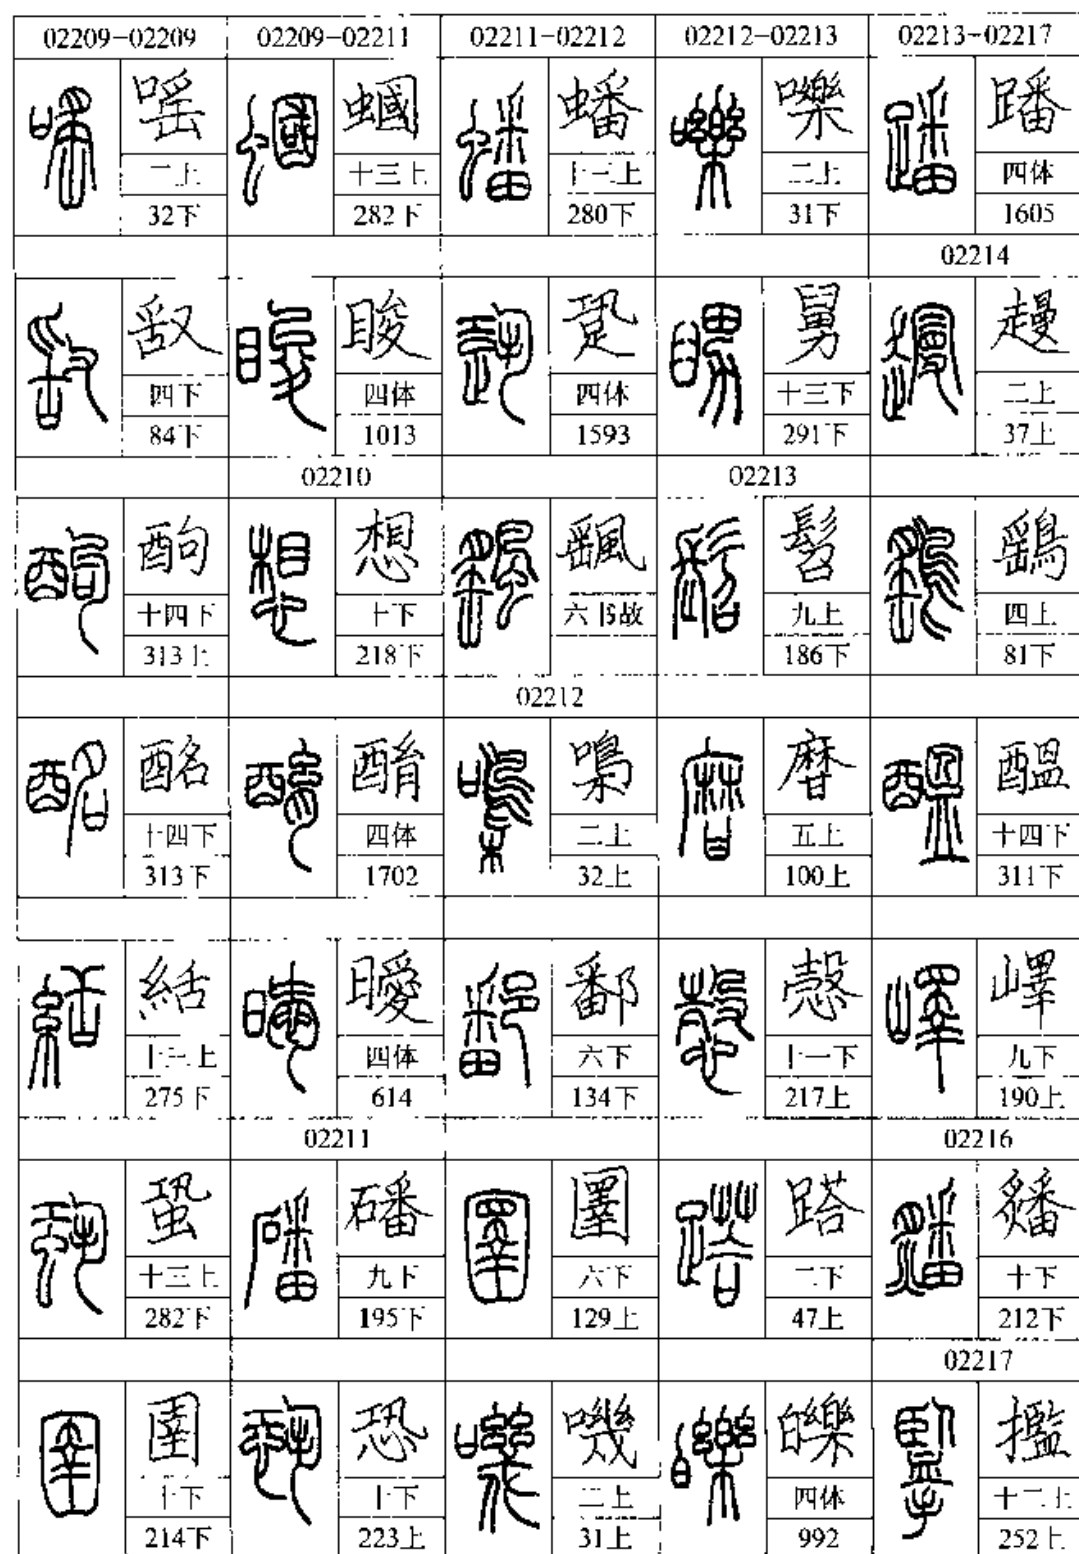 02209-02209
嗂
二上
32下
四下
84下
十四下
313上
酩
十四下
313下
絬
十三上
275下
蛩
十三上
282下
圉
十下
214下
02209-02211
蟈
十三上
282下
睃
四体
1013
02210
想
十下
218下
四体
1702
曖
四体
614
02211
磻
九下
195下
恐
十下
223上
02211-02212
蟠
十三上
280下
跫
四体
1593
颻
六书故
02212
嘄
二上
32上
鄱
六下
134下
圛
六下
129上
嘰
二上
31上
02212-02213
嚛
二上
31下
舅
十三下
291下
02213
髫
九上
186下
五上
100上
愨
217上
二下
47上
皪
四体
992
02213-02217
蹯
四体
1605
02214
二上
37上
鷂
四上
81下
醞
十四下
311下
嶧
九下
190上
02216
十下
212下
02217
㩜
十二上
252上